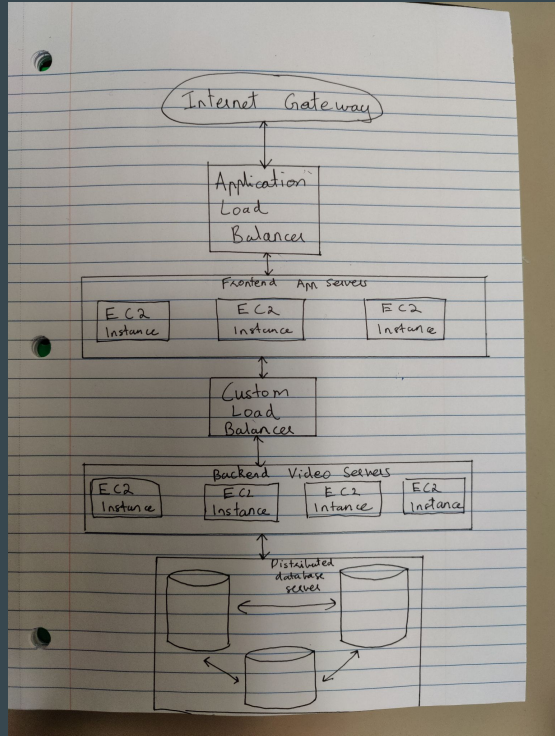 Internet Gateway
Application
Load
Balancer
Frontend App Servers
EC2
Instance
EC2
Instance
EC2
Instance
Custom
Load
Balancer
Backend Video Servers
EC2
Instance
EC2
Instance
EC2
Intance
EC2
Instance
Distributed
database
server